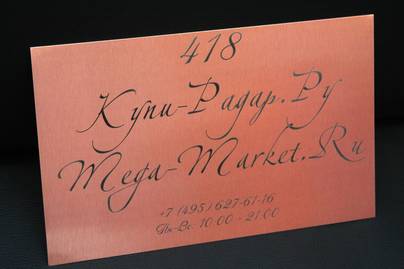 418
Купи-Радар.Ру
Mega-Market.Ru
+7 (495) 627-61-16
Пн-Вс. 10.00 - 21.00